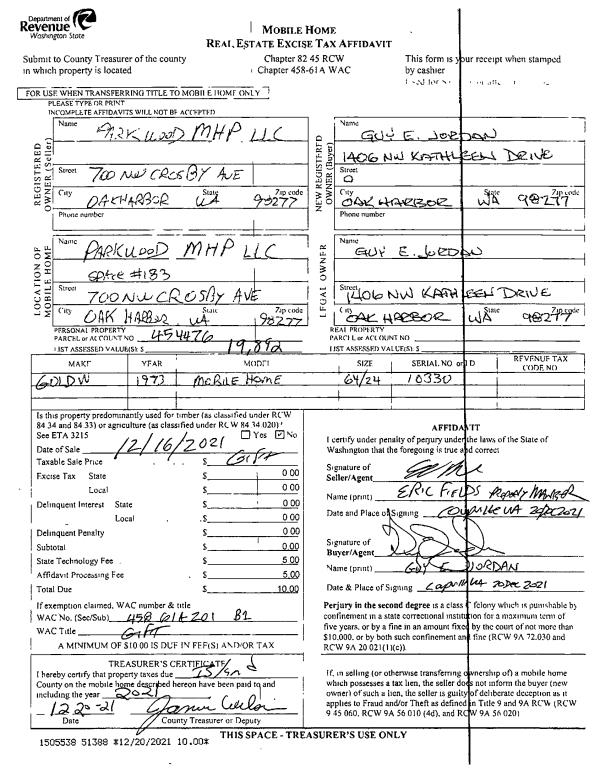 Department of
Revenue
Washington State
MOBILE HOME
REAL ESTATE EXCISE TAX AFFIDAVIT
Submit to County Treasurer of the county
in which property is located
Chapter 82 45 RCW
Chapter 458-61A WAC
This form is your receipt when stamped
by cashier
FOR USE WHEN TRANSFERRING TITLE TO MOBILE HOME ONLY
PLEASE TYPE OR PRINT
INCOMPLETE AFFIDAVITS WILL NOT BE ACCEPTED
REGISTERED OWNER (Seller)
Name PARKWOOD MHP LLC
Street 700 NW CROSBY AVE
City OAKHARBOR State WA Zip code 98277
Phone number
NEW REGISTERED OWNER (Buyer)
Name GUY E. JORDAN
1406 NW KATHLEEN DRIVE
Street
City OAK HARBOR State WA Zip code 98277
Phone number
LOCATION OF MOBILE HOME
Name PARKWOOD MHP LLC
SPACE #183
Street 700 NW CROSBY AVE
City OAK HARBOR WA Zip code 98277
LEGAL OWNER
Name GUY E. JORDAN
Street 1406 NW KATHLEEN DRIVE
City OAK HARBOR State WA Zip code 98277
PERSONAL PROPERTY
PARCEL or ACCOUNT NO 454476
LIST ASSESSED VALUE(S) $ 19,892
REAL PROPERTY
PARCEL or ACCOUNT NO
LIST ASSESSED VALUE(S) $
MAKE YEAR MODEL SIZE SERIAL NO or ID REVENUE TAX CODE NO
GOLDW 1973 MOBILE HOME 64/24 10330
Is this property predominantly used for timber (as classified under RCW
84 34 and 84.33) or agriculture (as classified under RCW 84 34.020)?
See ETA 3215 Yes No
Date of Sale 12/16/2021
Taxable Sale Price $ GIFT
Excise Tax State $ 0 00
Local $ 0 00
Delinquent Interest State $ 0 00
Local $ 0 00
Delinquent Penalty $ 0 00
Subtotal $ 0.00
State Technology Fee $ 5.00
Affidavit Processing Fee $ 5.00
Total Due $ 10.00
If exemption claimed, WAC number & title
WAC No. (Sec/Sub) 458 61A 201 B1
WAC Title GIFT
A MINIMUM OF $10.00 IS DUE IN FEE(S) AND/OR TAX
AFFIDAVIT
I certify under penalty of perjury under the laws of the State of
Washington that the foregoing is true and correct
Signature of
Seller/Agent
Name (print) ERIC FIELDS PROPERTY MANAGER
Date and Place of Signing
Signature of
Buyer/Agent
Name (print) GUY E JORDAN
Date & Place of Signing WA 20 DEC 2021
Perjury in the second degree is a class C felony which is punishable by
confinement in a state correctional institution for a maximum term of
five years, or by a fine in an amount fixed by the court of not more than
$10,000, or by both such confinement and fine (RCW 9A 72.030 and
RCW 9A 20 021(1)(c)).
TREASURER'S CERTIFICATE
I hereby certify that property taxes due
County on the mobile home described hereon have been paid to and
including the year 2021
12 20-21
Date County Treasurer or Deputy
If, in selling (or otherwise transferring ownership of) a mobile home
which possesses a tax lien, the seller does not inform the buyer (new
owner) of such a lien, the seller is guilty of deliberate deception as it
applies to Fraud and/or Theft as defined in Title 9 and 9A RCW (RCW
9 45 060, RCW 9A 56 010 (4d), and RCW 9A 56 020)
THIS SPACE - TREASURER'S USE ONLY
1505538 51388 *12/20/2021 10.00*